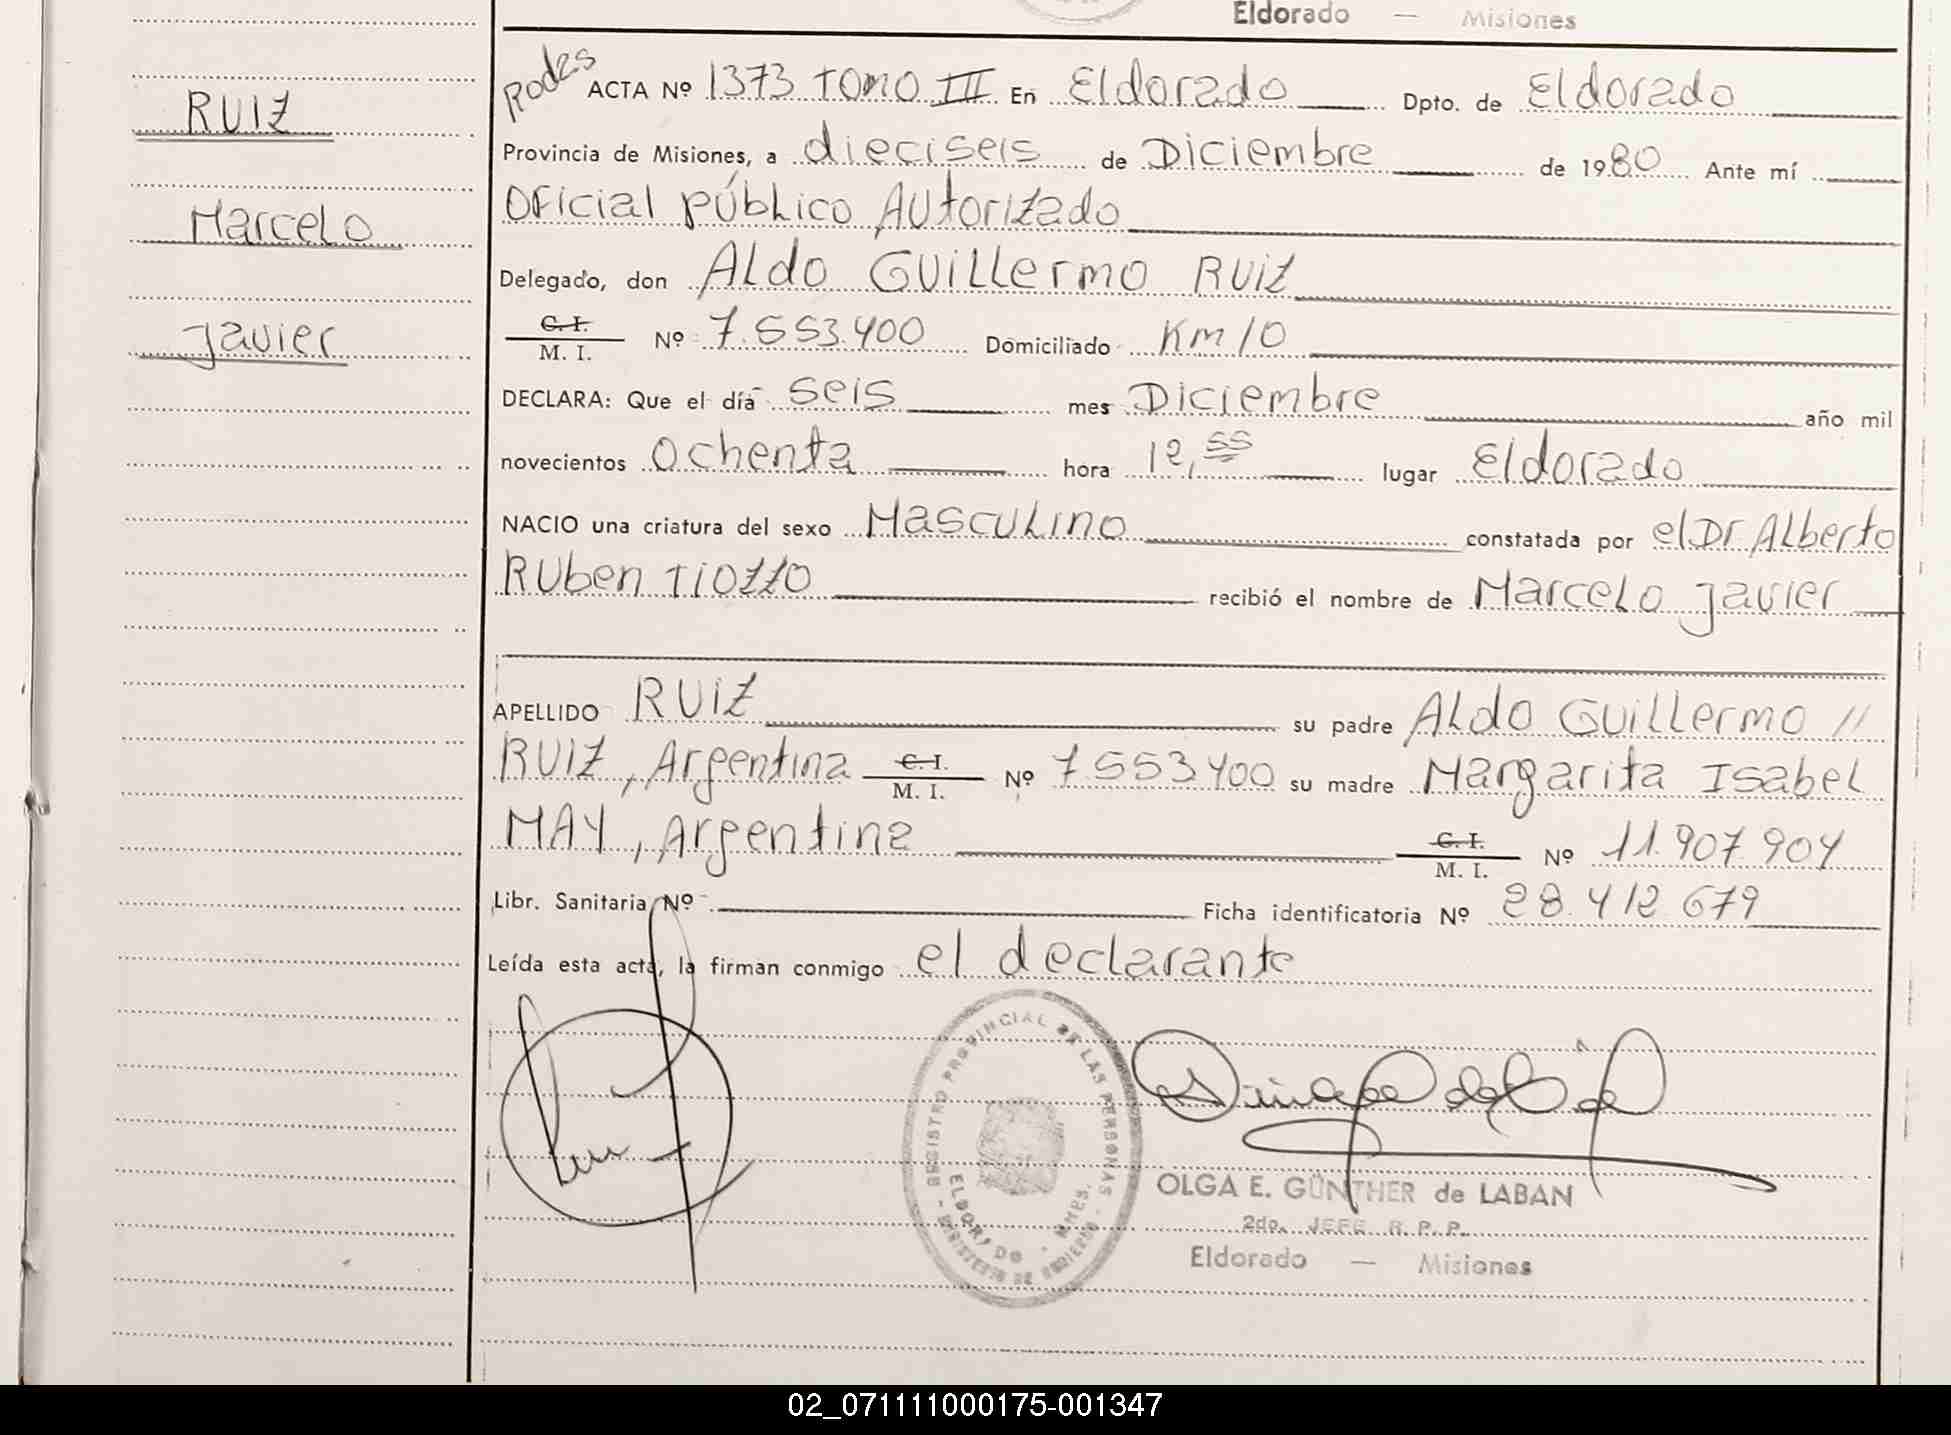 Eldorado — Misiones
RUIZ
Marcelo
Javier
Rodes ACTA Nº 1373 TOMO III En Eldorado Dpto. de Eldorado
Provincia de Misiones, a dieciseis de Diciembre de 1980 Ante mí
Oficial Público Autorizado
Delegado, don Aldo Guillermo Ruiz
C. I.
M. I. Nº 7.553.400 Domiciliado Km 10
DECLARA: Que el día seis mes Diciembre año mil
novecientos ochenta hora 12,55 lugar Eldorado
NACIO una criatura del sexo Masculino constatada por el Dr. Alberto
Ruben Tiozzo recibió el nombre de Marcelo Javier
APELLIDO RUIZ su padre Aldo Guillermo //
RUIZ, Argentina C. I. M. I. Nº 7.553.400 su madre Margarita Isabel
MAY, Argentina C. I. M. I. Nº 11.907.904
Libr. Sanitaria Nº Ficha identificatoria Nº 28.412.679
Leída esta acta, la firman conmigo el declarante
REGISTRO PROVINCIAL DE LAS PERSONAS
ELDORADO - MNES.
- MINISTERIO DE GOBIERNO -
OLGA E. GÜNTHER de LABAN
2do. JEFE R. P. P.
Eldorado — Misiones
02_071111000175-001347